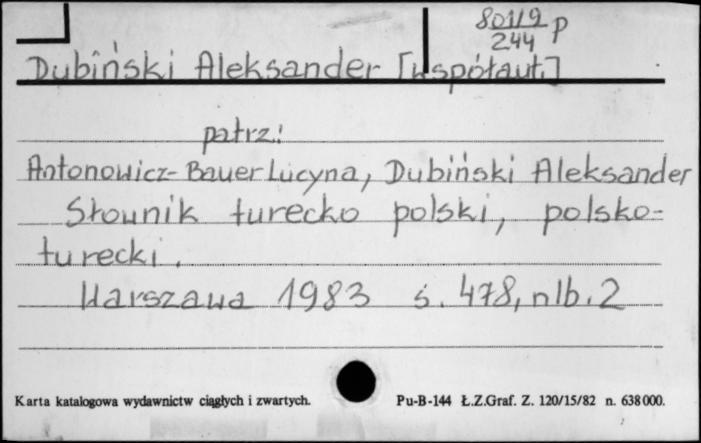 801/9 p
244
Dubiński Aleksander [współaut.]
patrz:
Antonowicz-Bauer Lucyna, Dubiński Aleksander
Słownik turecko polski, polsko-
turecki.
Warszawa 1983 s. 478, nlb. 2
Karta katalogowa wydawnictw ciągłych i zwartych. Pu-B-144 Ł.Z.Graf. Z. 120/15/82 n. 638000.